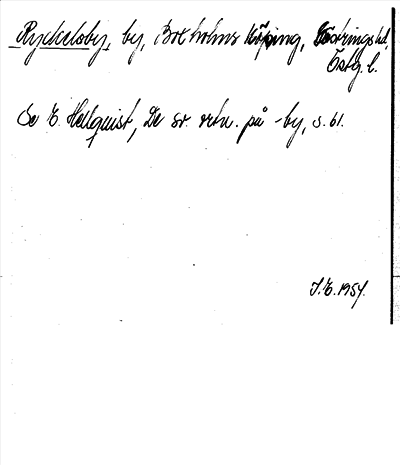 Ryckelsby, by, Boxholms köping, Göstrings hd,
Östg. l.
Se E. Hellquist, De sv. ortn. på -by, s. 61.
J.E. 1954.